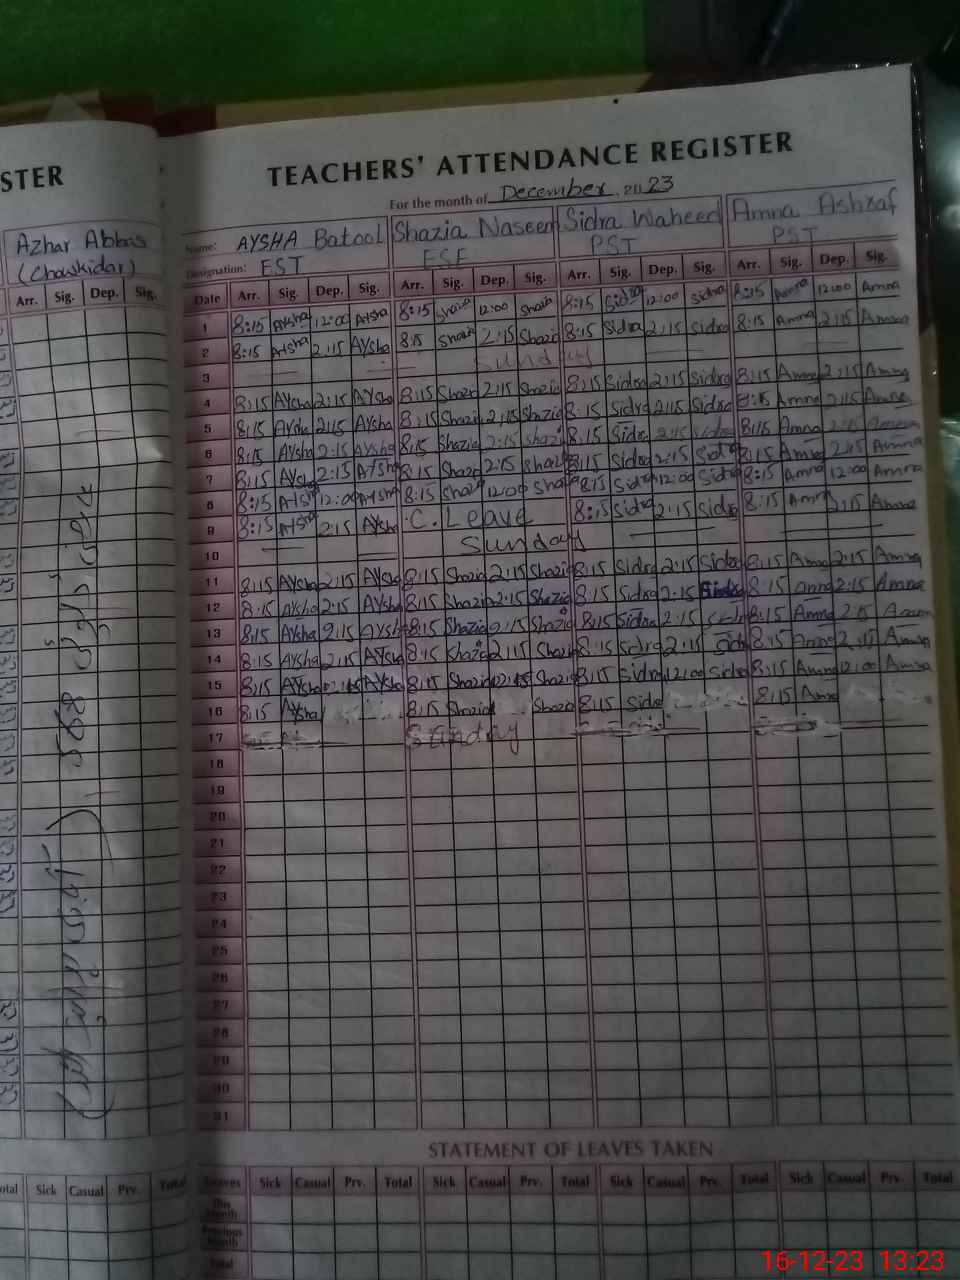 STER
TEACHERS' ATTENDANCE REGISTER
For the month of December, 2023
Azhar Abbas
(Chowkidar)
Arr. Sig. Dep. Sig.
Name: AYSHA Batool Shazia Naseem Sidra Waheed Amna Ashraf
Designation: EST ESE PST PST
Date Arr. Sig. Dep. Sig. Arr. Sig. Dep. Sig. Arr. Sig. Dep. Sig. Arr. Sig. Dep. Sig.
1 8:15 Aysha 12:00 Aysha 8:15 Shazia 12:00 Shazia 8:15 Sidra 12:00 Sidra 8:15 Amna 12:00 Amna
2 8:15 Aysha 2:15 AYsha 8:15 Shazia 2:15 Shazia 8:15 Sidra 2:15 Sidra 8:15 Amna 2:15 Amna
3 Sunday
4 8:15 AYsha 2:15 AYsha 8:15 Shazia 2:15 Shazia 8:15 Sidra 2:15 Sidra 8:15 Amna 2:15 Amna
5 8:15 AYsha 2:15 AYsha 8:15 Shazia 2:15 Shazia 8:15 Sidra 2:15 Sidra 8:15 Amna 2:15 Amna
6 8:15 AYsha 2:15 AYsha 8:15 Shazia 2:15 Shazia 8:15 Sidra 2:15 Sidra 8:15 Amna 2:15 Amna
7 8:15 AYsha 2:15 AYsha 8:15 Shazia 2:15 Shazia 8:15 Sidra 2:15 Sidra 8:15 Amna 2:15 Amna
8 8:15 Aysha 12:00 AYsha 8:15 Shazia 12:00 Shazia 8:15 Sidra 12:00 Sidra 8:15 Amna 12:00 Amna
9 8:15 AYsha 2:15 AYsha C. Leave 8:15 Sidra 2:15 Sidra 8:15 Amna 2:15 Amna
10 Sunday
11 8:15 AYsha 2:15 AYsha 8:15 Shazia 2:15 Shazia 8:15 Sidra 2:15 Sidra 8:15 Amna 2:15 Amna
12 8:15 AYsha 2:15 AYsha 8:15 Shazia 2:15 Shazia 8:15 Sidra 2:15 Sidra 8:15 Amna 2:15 Amna
13 8:15 AYsha 2:15 AYsha 8:15 Shazia 2:15 Shazia 8:15 Sidra 2:15 8:15 Amna 2:15 Amna
14 8:15 AYsha 2:15 AYsha 8:15 Shazia 2:15 Shazia 8:15 Sidra 2:15 Sidra 8:15 Amna 2:15 Amna
15 8:15 AYsha AYsha 8:15 Shazia Shazia 8:15 Sidra 12:00 Sidra 8:15 Amna 12:00 Amna
16 8:15 AYsha 8:15 Shazia Shazia 8:15 Sidra 8:15 Amna
17 Sunday
18
19
20
21
22
23
24
25
26
27
28
29
30
31
STATEMENT OF LEAVES TAKEN
otal Sick Casual Prv. Total
Leaves Sick Casual Prv. Total Sick Casual Prv. Total Sick Casual Prv. Total Sick Casual Prv. Total
This Month
Previous Month
Total
16-12-23 13:23